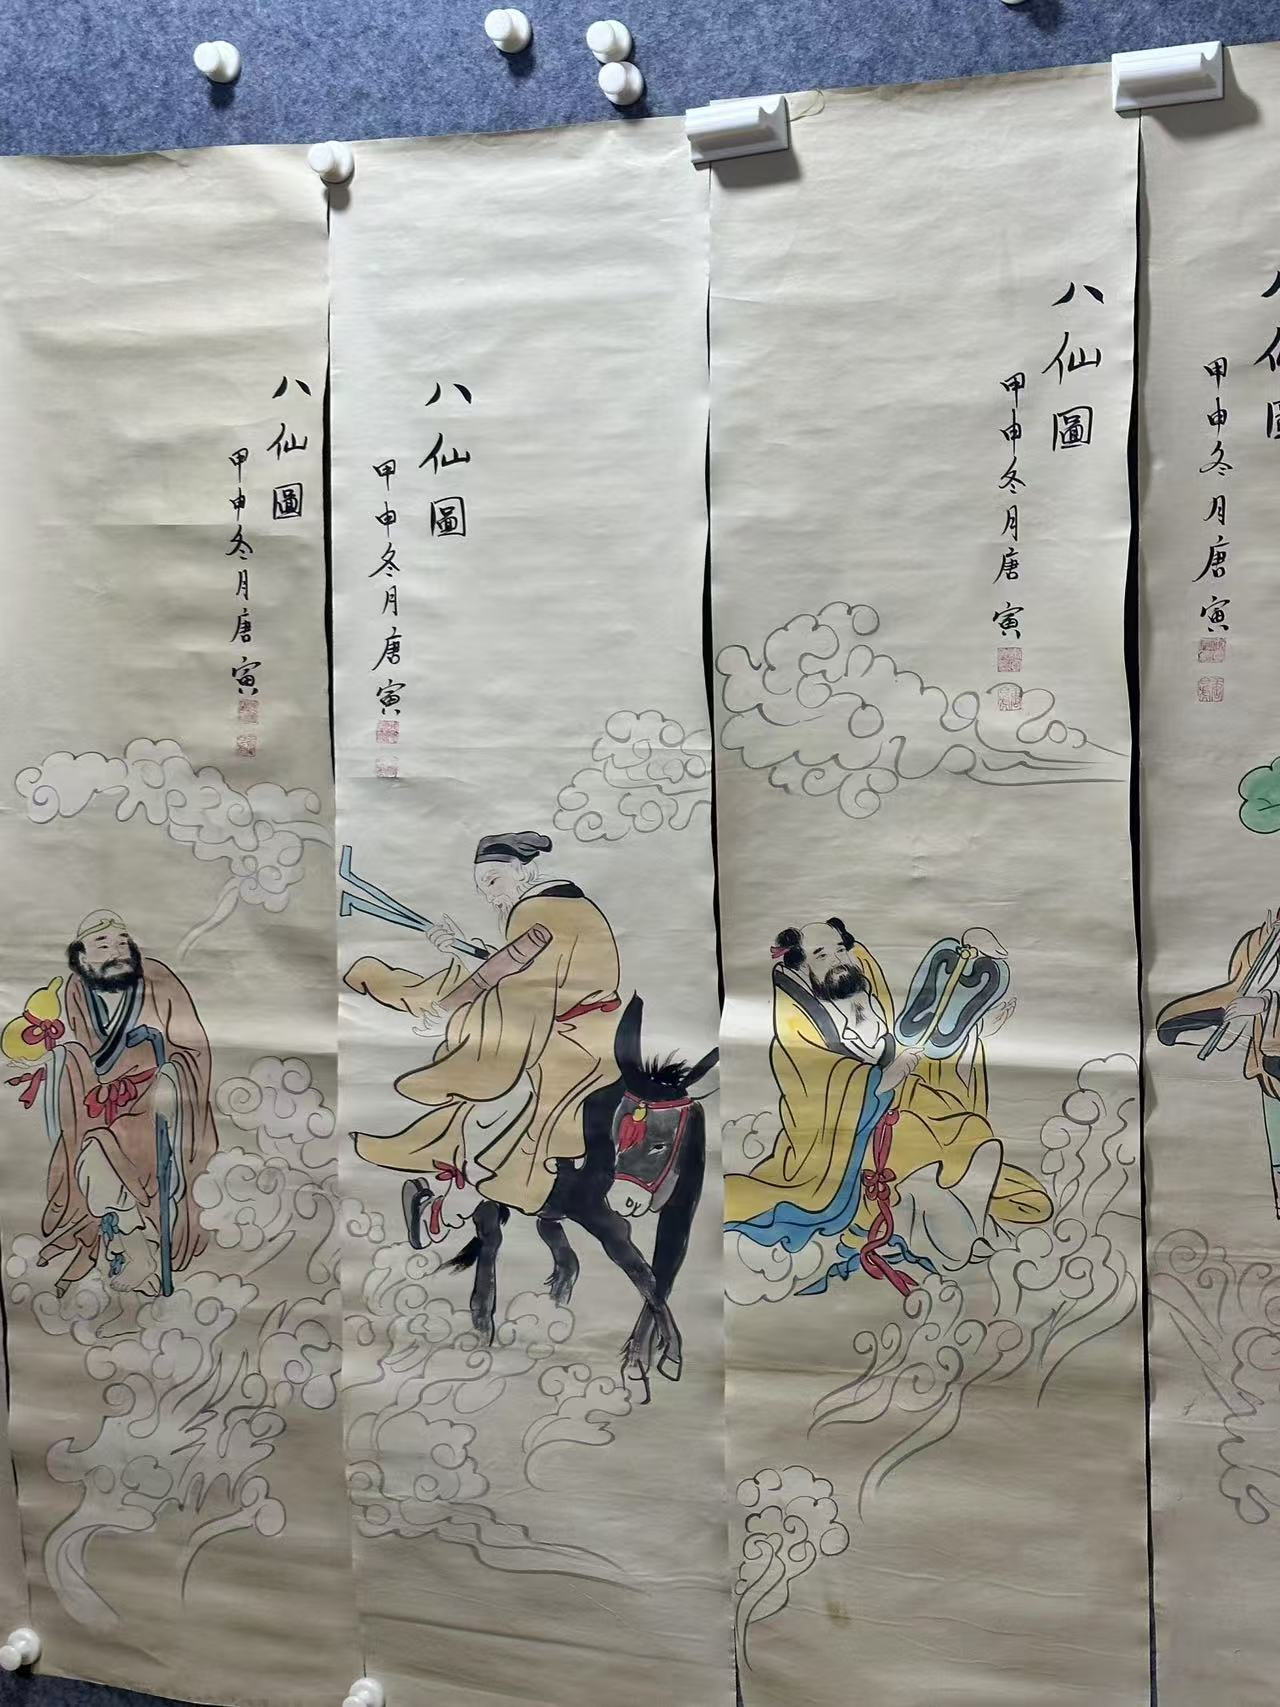 八仙圖
甲申冬月唐寅
八仙圖
甲申冬月唐寅
八仙圖
甲申冬月唐寅
八仙圖
甲申冬月唐寅